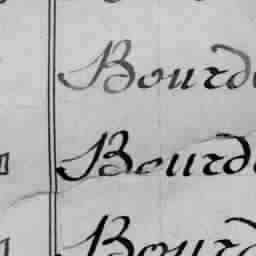 Bourd
Bourd
Bourd